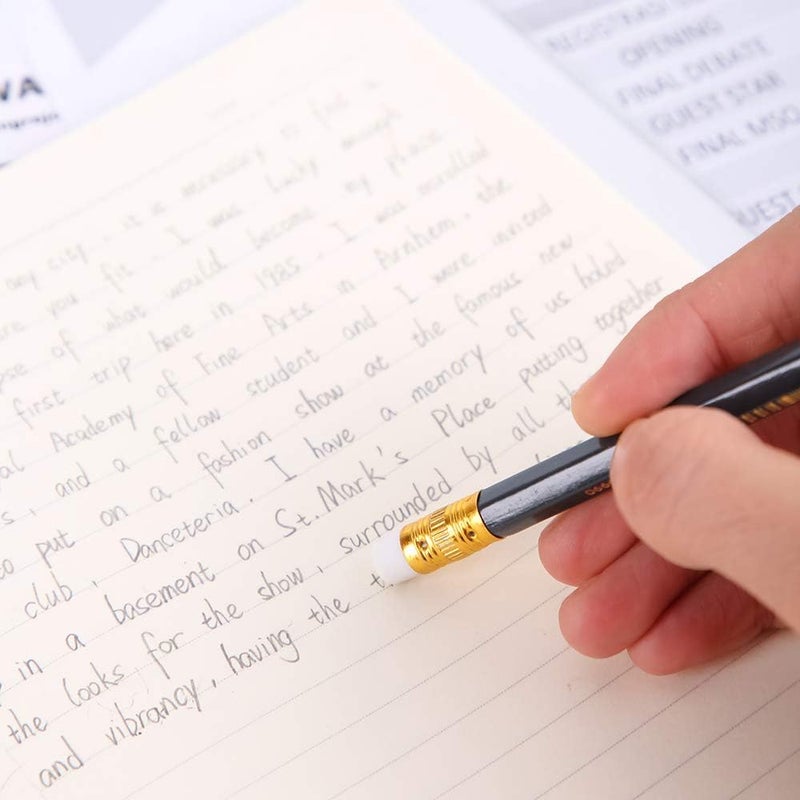 WA
REGISTRASI
OPENING
FINAL DEBATE
GUEST STAR
FINAL MSO
GUEST
my city. it is necessary to find a
you fit. I was lucky enough
of what would become my place
first trip here in 1985. I was enrolled
Academy of Fine Arts in Arnhem. the
and a fellow student and I were invited
to put on a fashion show at the famous new
club, Danceteria. I have a memory of us holed
in a basement on St. Mark's Place putting together
the looks for the show, surrounded by all the
and vibrancy, having the t